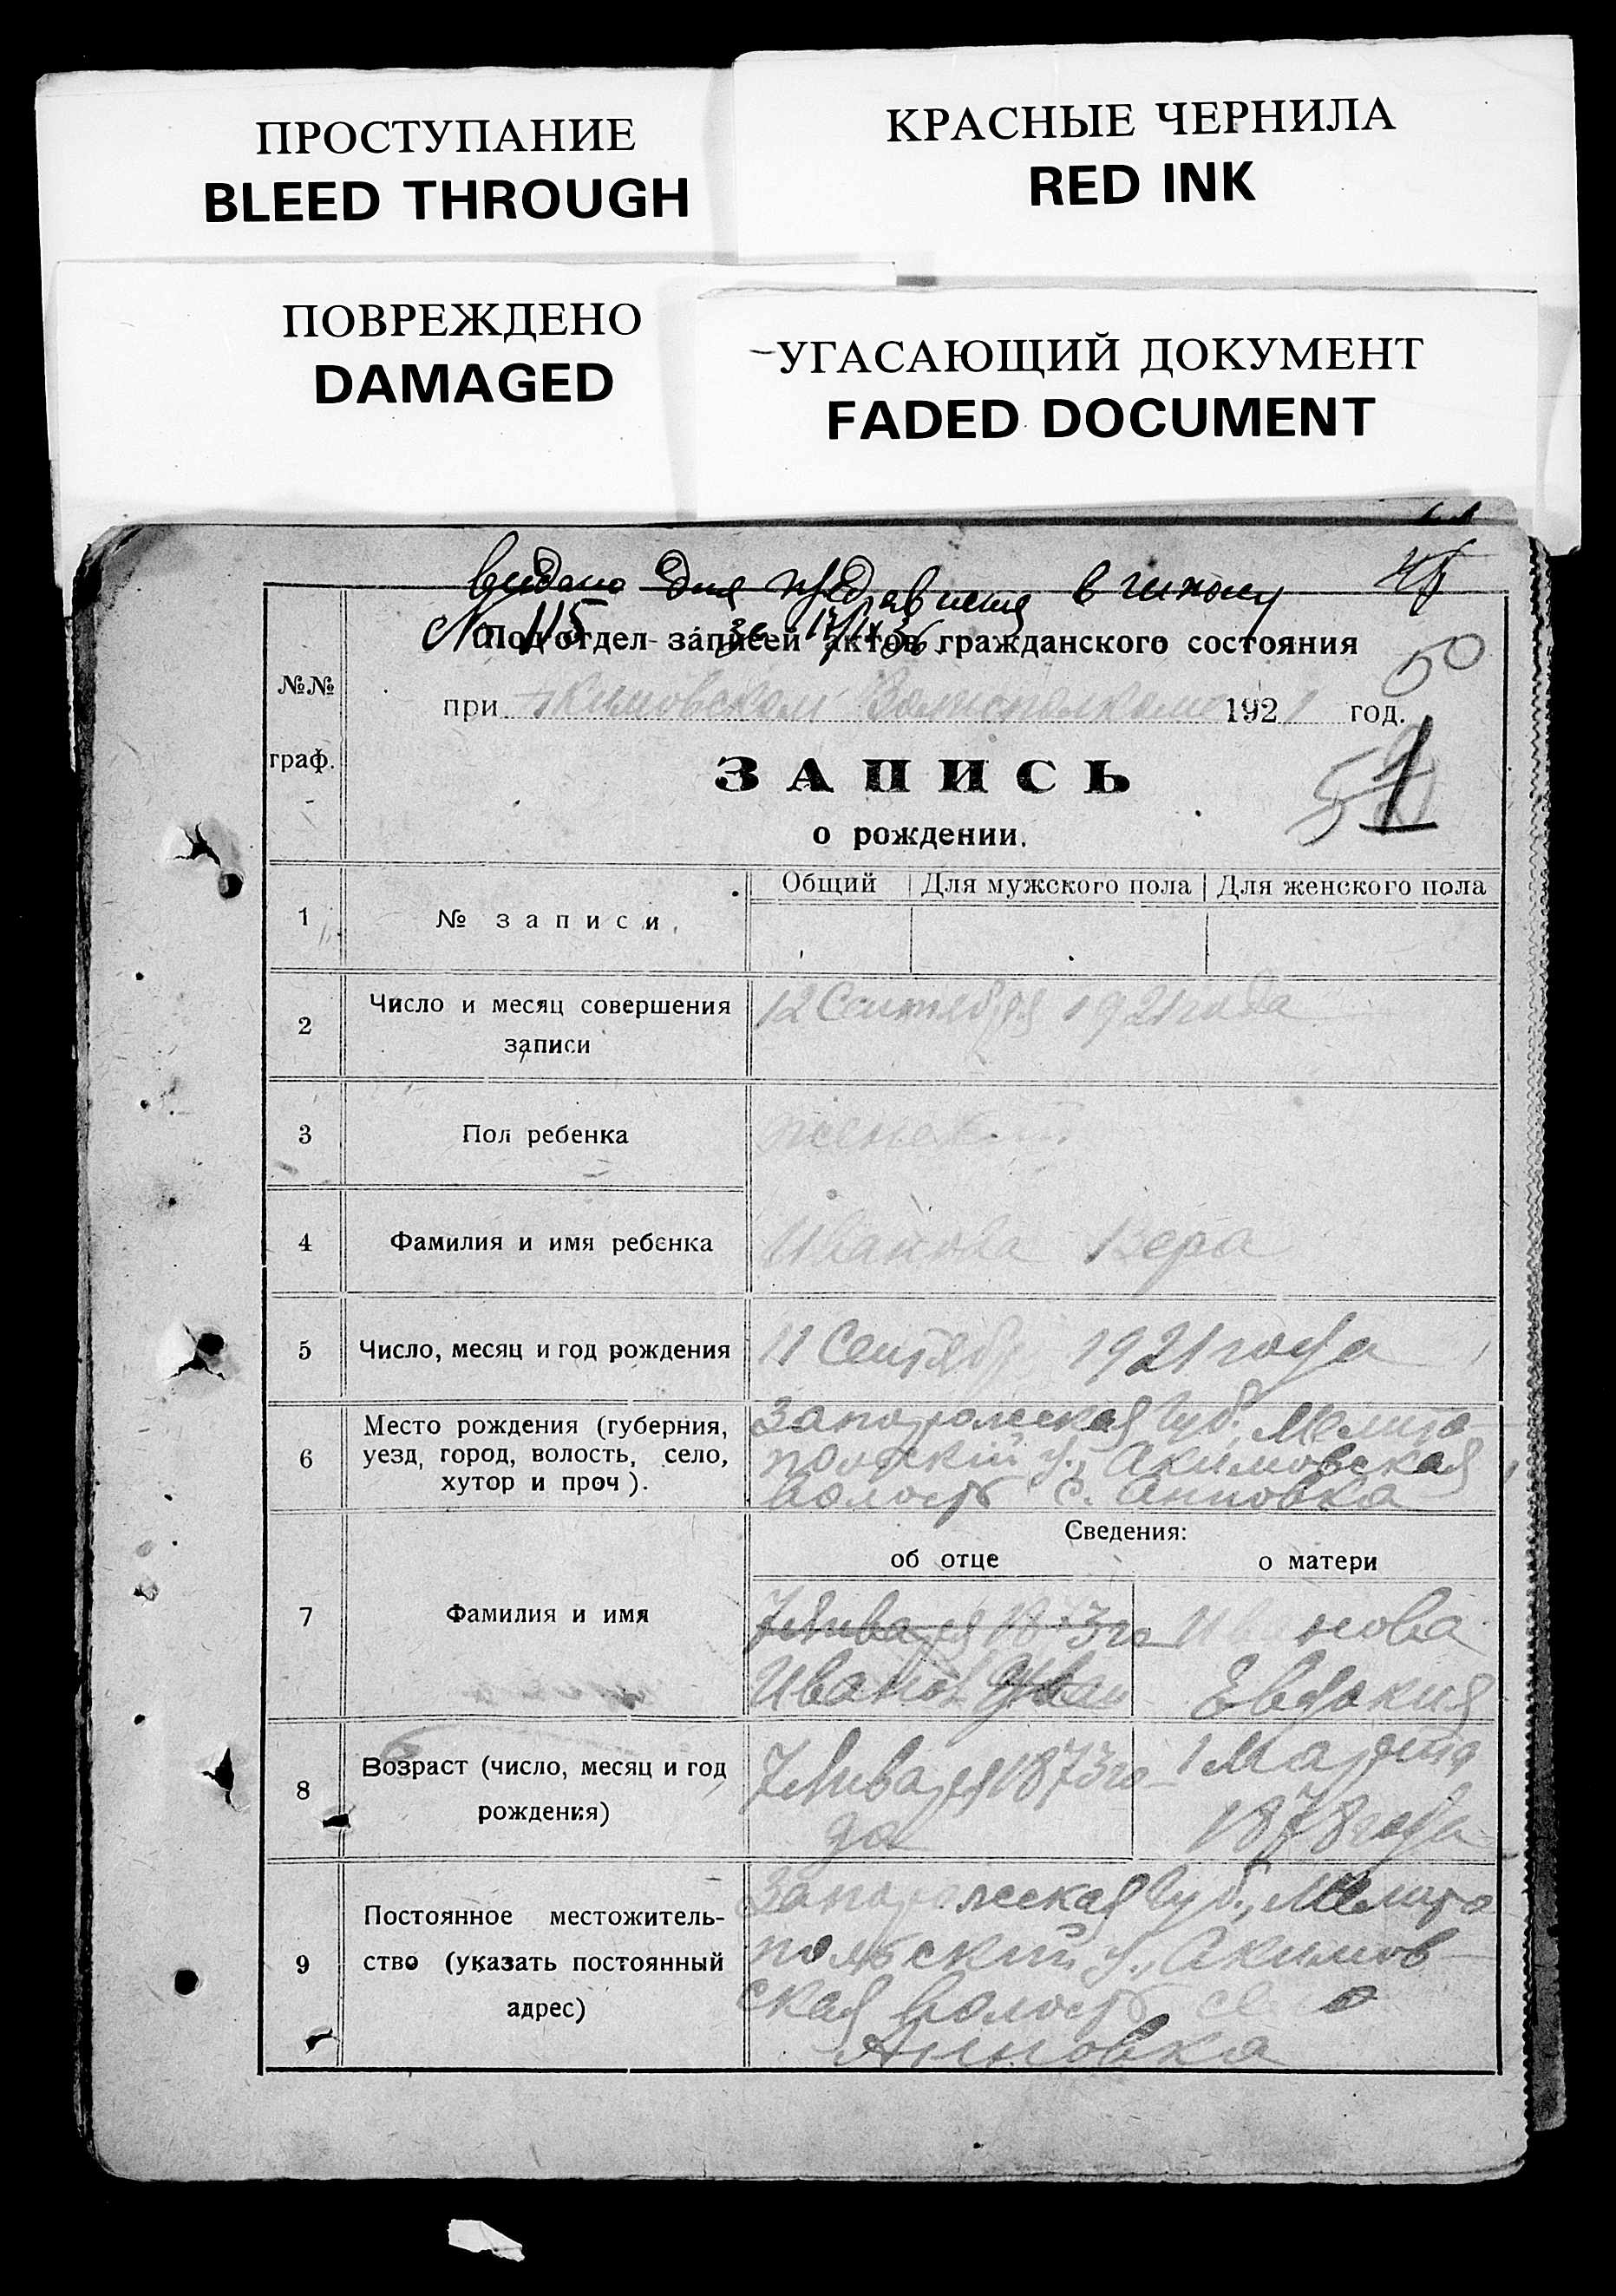 ПРОСТУПАНИЕ
BLEED THROUGH
КРАСНЫЕ ЧЕРНИЛА
RED INK
ПОВРЕЖДЕНО
DAMAGED
УГАСАЮЩИЙ ДОКУМЕНТ
FADED DOCUMENT
видано для
№ 115
Подотдел записей актов гражданского состояния
50
№№
граф.
при Акимовском Волисполкоме 1921 год.
ЗАПИСЬ
1
о рождении.
Общий Для мужского пола Для женского пола
1 № записи
2 Число и месяц совершения
записи
12 Сентября 1921 года
3 Пол ребенка женский
4 Фамилия и имя ребенка Иванова Вера
5 Число, месяц и год рождения 11 Сентябр 1921 года
6 Место рождения (губерния,
уезд, город, волость, село,
хутор и проч).
Запорожская Губ., Мелито
польский у., Акимовская
волость с. Анновка
Сведения:
об отце о матери
7 Фамилия и имя
7 Января 1873 го
Иванов Иван
Иванова
Евдокия
8 Возраст (число, месяц и год
рождения)
7 Января 1873 го-
да
1 Марта
1878 года
9 Постоянное местожитель-
ство (указать постоянный
адрес)
Запорожская Губ., Мелито
польский у., Акимов
ская волость село
Анновка